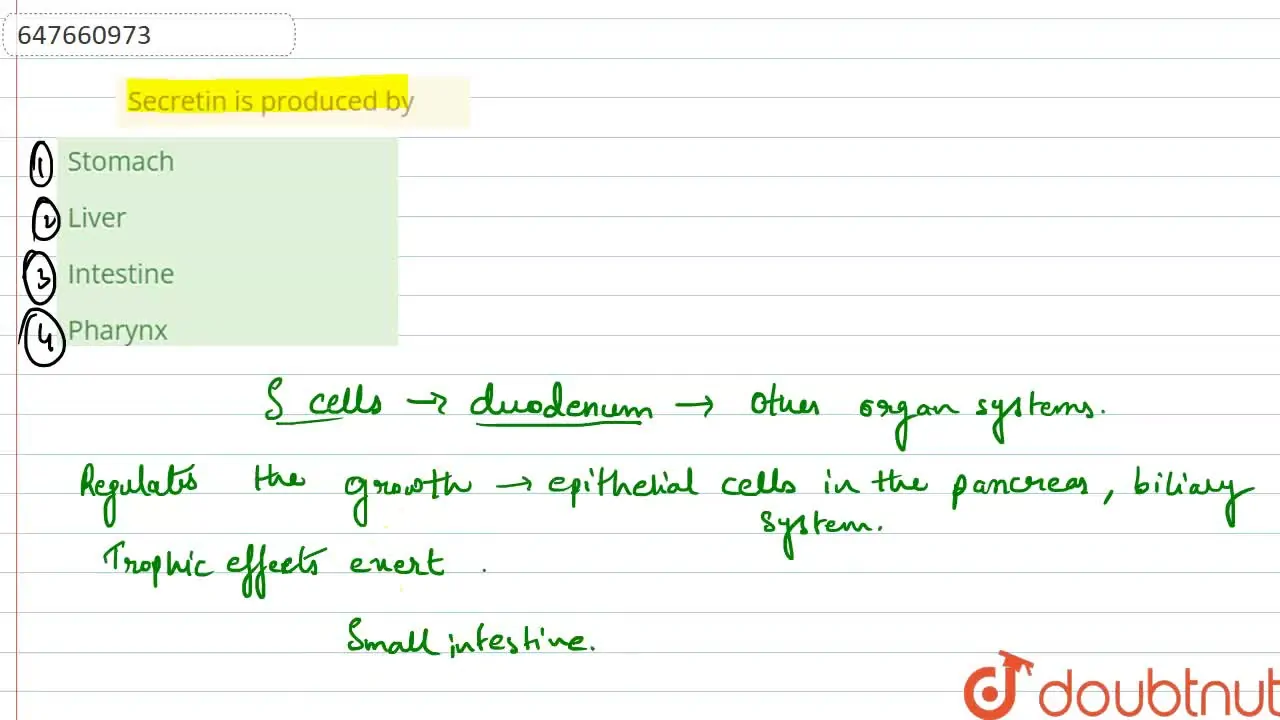 647660973
Secretin is produced by
1 Stomach
2 Liver
3 Intestine
4 Pharynx
S cells → duodenum → other organ systems.
Regulates the growth → epithelial cells in the pancreas, biliary
system.
Trophic effects exert .
Small intestine.
doubtnut